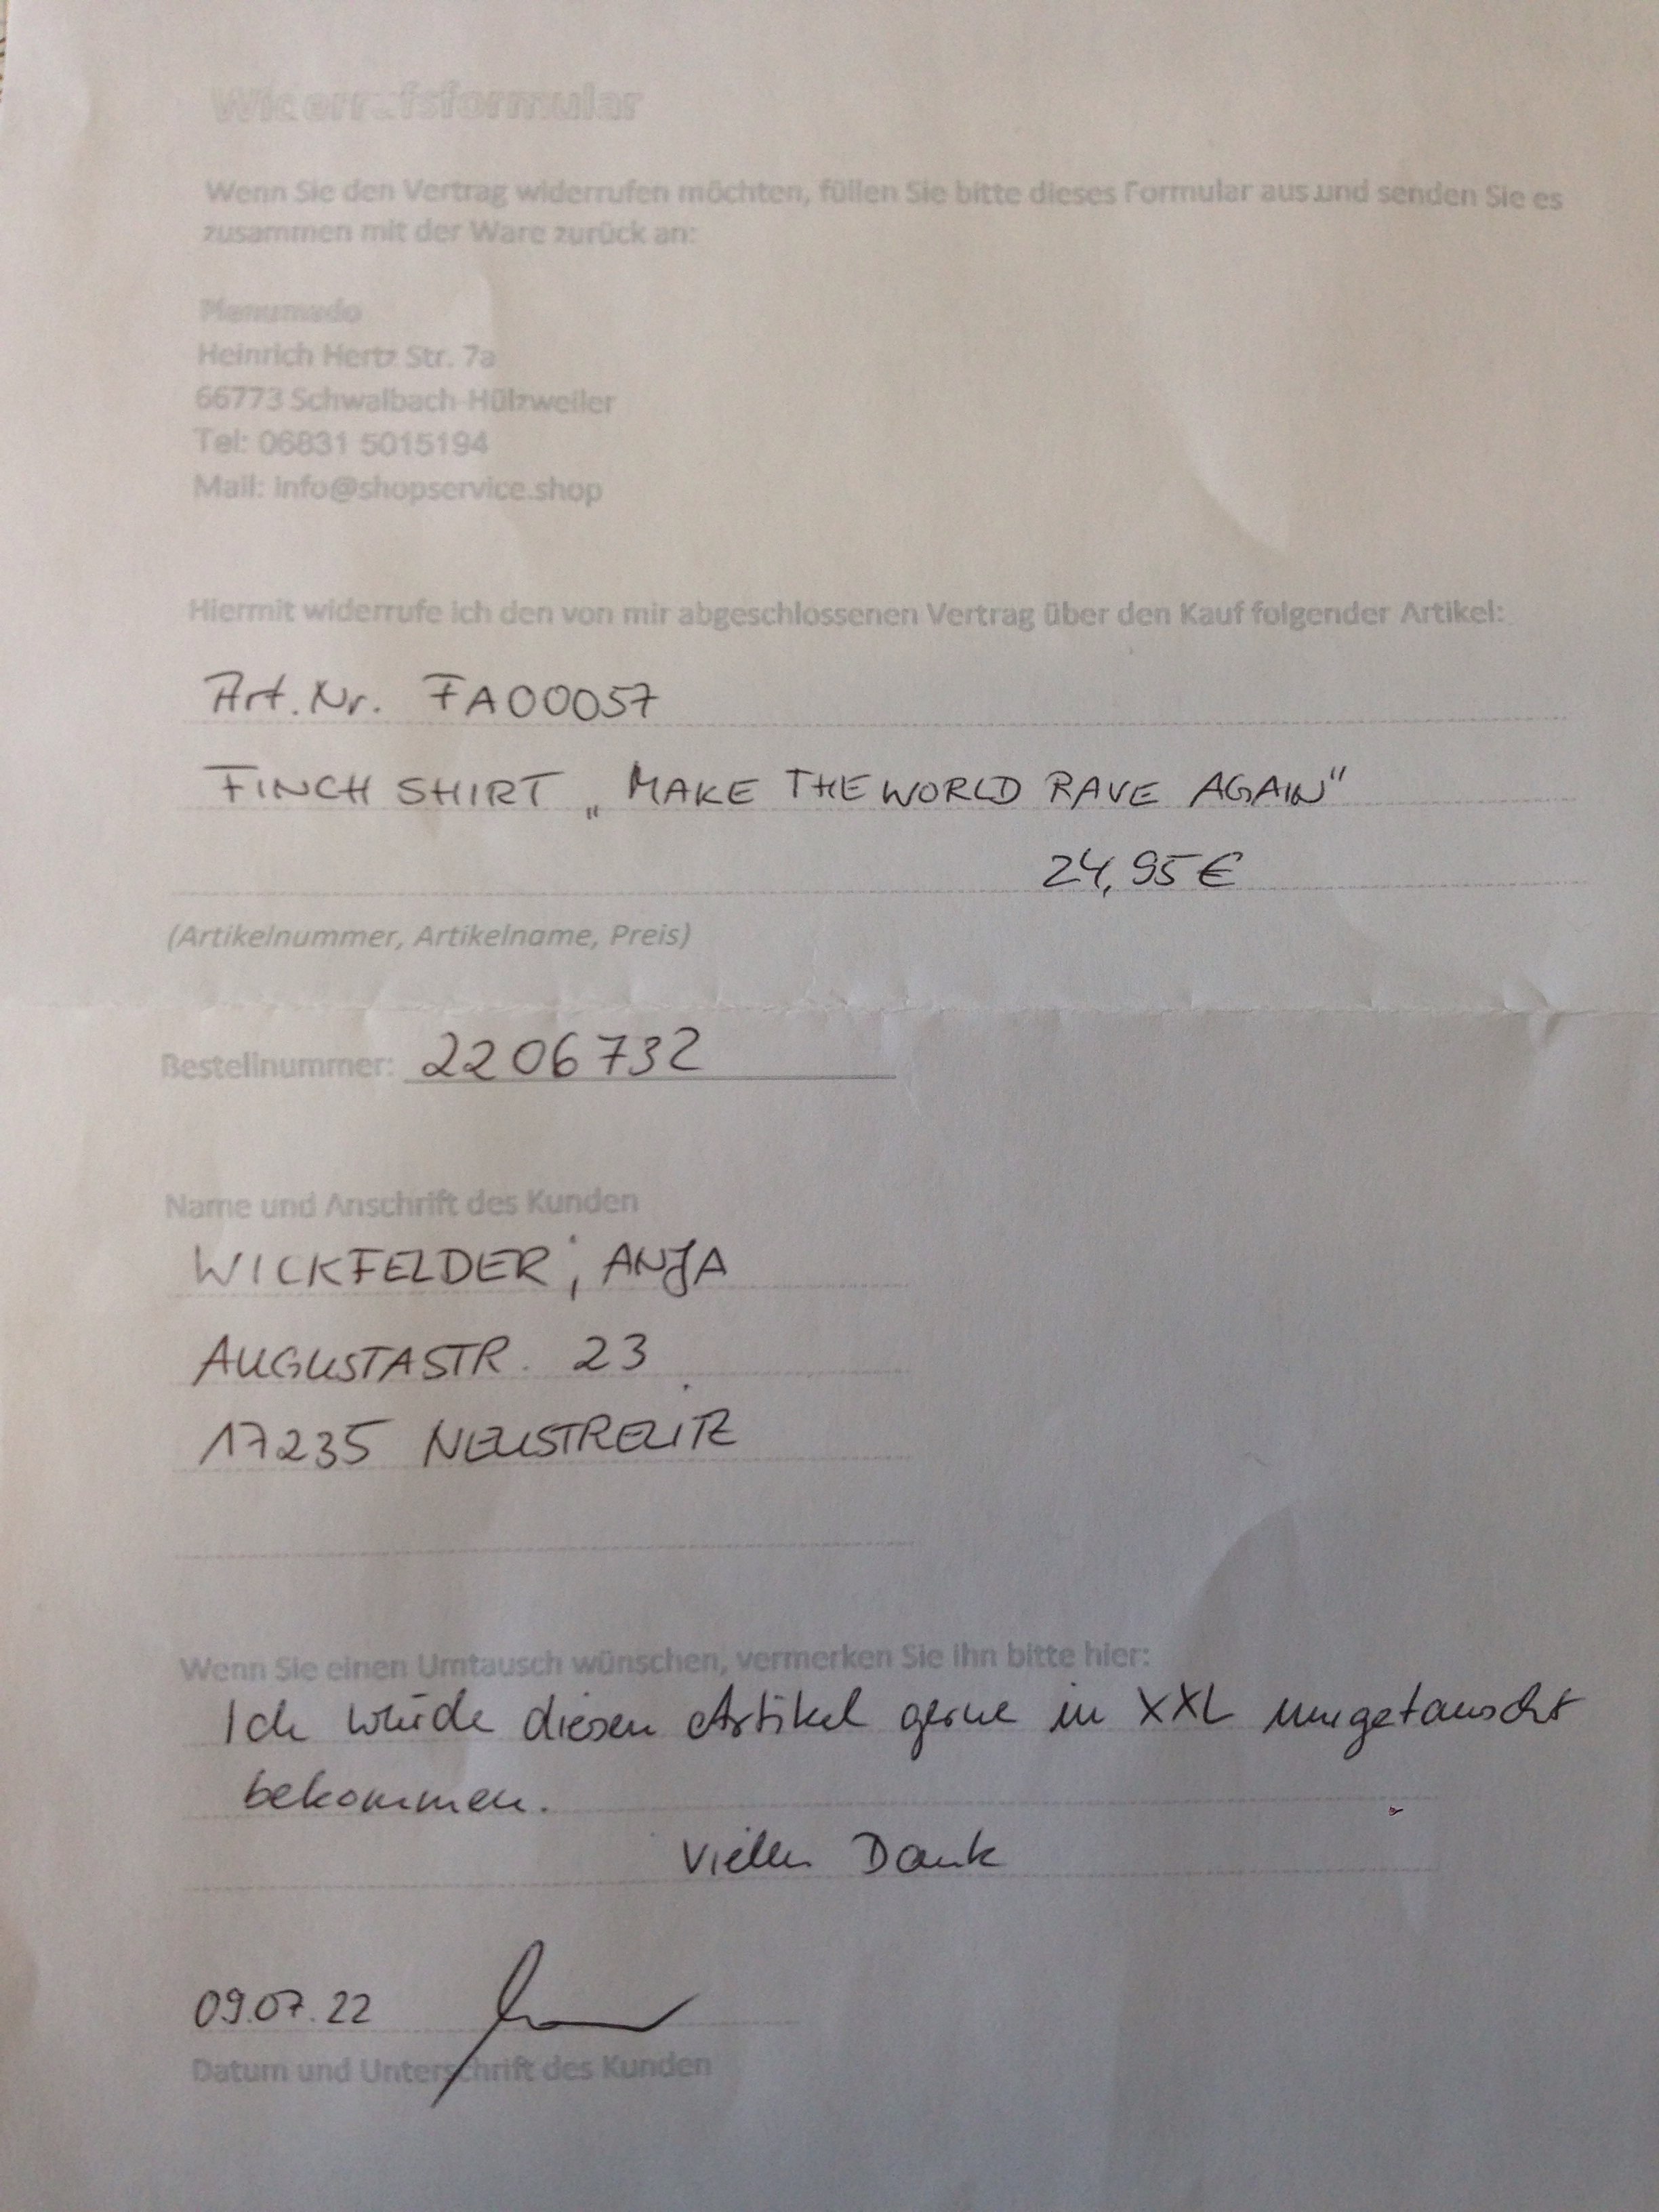 Widerrufsformular
Wenn Sie den Vertrag widerrufen möchten, füllen Sie bitte dieses Formular aus und senden Sie es
zusammen mit der Ware zurück an:
Heinrich Hertz Str. 7a
66773 Schwalbach-Hülzweiler
Tel: 06831 5015194
Mail: info@shopservice.shop
Hiermit widerrufe ich den von mir abgeschlossenen Vertrag über den Kauf folgender Artikel:
Art. Nr. FA00057
FINCH SHIRT „MAKE THE WORLD RAVE AGAIN"
24,95 €
(Artikelnummer, Artikelname, Preis)
Bestellnummer: 2206732
Name und Anschrift des Kunden
WICKFELDER, ANJA
AUGUSTASTR. 23
17235 NEUSTRELITZ
Wenn Sie einen Umtausch wünschen, vermerken Sie ihn bitte hier:
Ich würde diesen Artikel gerne in XXL umgetauscht
bekommen.
Vielen Dank
09.07.22
Datum und Unterschrift des Kunden